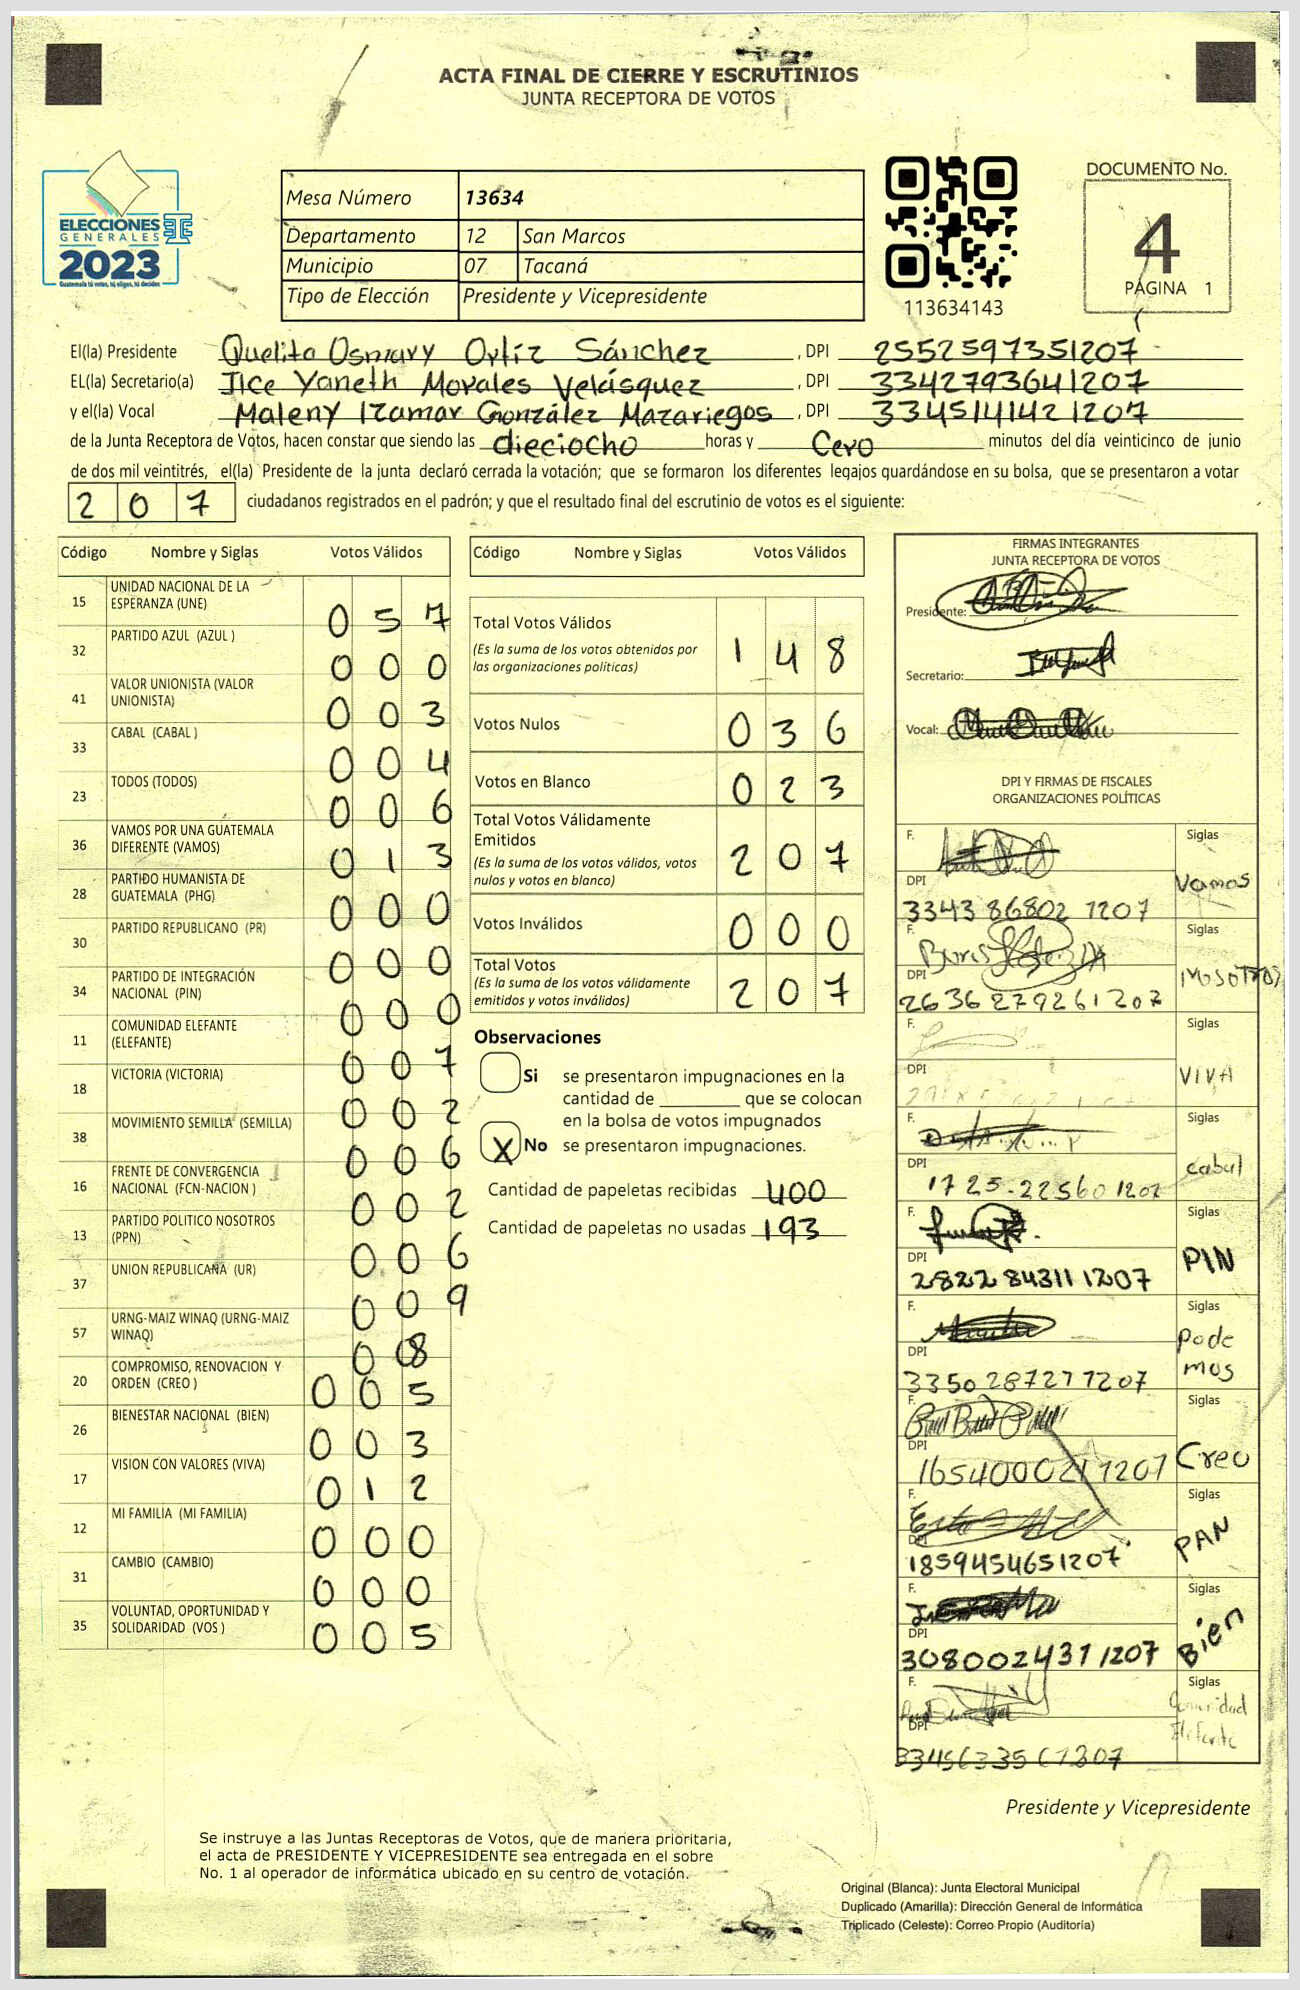 ACTA FINAL DE CIERRE Y ESCRUTINIOS
JUNTA RECEPTORA DE VOTOS
ELECCIONES
GENERALES
2023
Guatemala tú votas, tú eliges, tú decides
Mesa Número 13634
Departamento 12 San Marcos
Municipio 07 Tacaná
Tipo de Elección Presidente y Vicepresidente
113634143
DOCUMENTO No.
4
PÁGINA 1
El(la) Presidente Quelita Osmary Ortíz Sánchez, DPI 2552597351207
EL(la) Secretario(a) Ilce Yaneth Morales Velásquez, DPI 3342793641207
y el(la) Vocal Maleny Itamar González Mazariegos, DPI 3345141421207
de la Junta Receptora de Votos, hacen constar que siendo las dieciocho horas y Cero minutos del día veinticinco de junio
de dos mil veintitrés, el(la) Presidente de la junta declaró cerrada la votación; que se formaron los diferentes legajos guardándose en su bolsa, que se presentaron a votar
207 ciudadanos registrados en el padrón; y que el resultado final del escrutinio de votos es el siguiente:
Código Nombre y Siglas Votos Válidos
15 UNIDAD NACIONAL DE LA ESPERANZA (UNE) 057
32 PARTIDO AZUL (AZUL ) 000
41 VALOR UNIONISTA (VALOR UNIONISTA) 003
33 CABAL (CABAL ) 004
23 TODOS (TODOS) 006
36 VAMOS POR UNA GUATEMALA DIFERENTE (VAMOS) 013
28 PARTIDO HUMANISTA DE GUATEMALA (PHG) 000
30 PARTIDO REPUBLICANO (PR) 000
34 PARTIDO DE INTEGRACIÓN NACIONAL (PIN) 000
11 COMUNIDAD ELEFANTE (ELEFANTE) 007
18 VICTORIA (VICTORIA) 002
38 MOVIMIENTO SEMILLA (SEMILLA) 006
16 FRENTE DE CONVERGENCIA NACIONAL (FCN-NACION ) 002
13 PARTIDO POLITICO NOSOTROS (PPN) 006
37 UNION REPUBLICANA (UR) 009
57 URNG-MAIZ WINAQ (URNG-MAIZ WINAQ) 08
20 COMPROMISO, RENOVACION Y ORDEN (CREO ) 005
26 BIENESTAR NACIONAL (BIEN) 003
17 VISION CON VALORES (VIVA) 012
12 MI FAMILIA (MI FAMILIA) 000
31 CAMBIO (CAMBIO) 000
35 VOLUNTAD, OPORTUNIDAD Y SOLIDARIDAD (VOS ) 005
Código Nombre y Siglas Votos Válidos
Total Votos Válidos 148
(Es la suma de los votos obtenidos por
las organizaciones políticas)
Votos Nulos 036
Votos en Blanco 023
Total Votos Válidamente
Emitidos 207
(Es la suma de los votos válidos, votos
nulos y votos en blanco)
Votos Inválidos 000
Total Votos 207
(Es la suma de los votos válidamente
emitidos y votos inválidos)
Observaciones
Si se presentaron impugnaciones en la
cantidad de ________ que se colocan
en la bolsa de votos impugnados
X No se presentaron impugnaciones.
Cantidad de papeletas recibidas 400
Cantidad de papeletas no usadas 193
FIRMAS INTEGRANTES
JUNTA RECEPTORA DE VOTOS
Presidente:
Secretario:
Vocal:
DPI Y FIRMAS DE FISCALES
ORGANIZACIONES POLÍTICAS
F. Siglas
DPI Vamos
3343 86802 1207
F. Siglas
DPI NOSOTROS
2636279261207
F. Siglas
DPI VIVA
F. Siglas
DPI cabal
1725-22560 1207
F. Siglas
DPI PIN
2822 84311 1207
F. Siglas
DPI Pode mos
3350 28727 1207
F. Siglas
DPI Creo
1654000211207
F. Siglas
DPI PAN
1859454651207
F. Siglas
DPI Bien
3080024311207
F. Siglas
DPI Comunidad Elefante
Presidente y Vicepresidente
Se instruye a las Juntas Receptoras de Votos, que de manera prioritaria,
el acta de PRESIDENTE Y VICEPRESIDENTE sea entregada en el sobre
No. 1 al operador de informática ubicado en su centro de votación.
Original (Blanca): Junta Electoral Municipal
Duplicado (Amarilla): Dirección General de Informática
Triplicado (Celeste): Correo Propio (Auditoría)